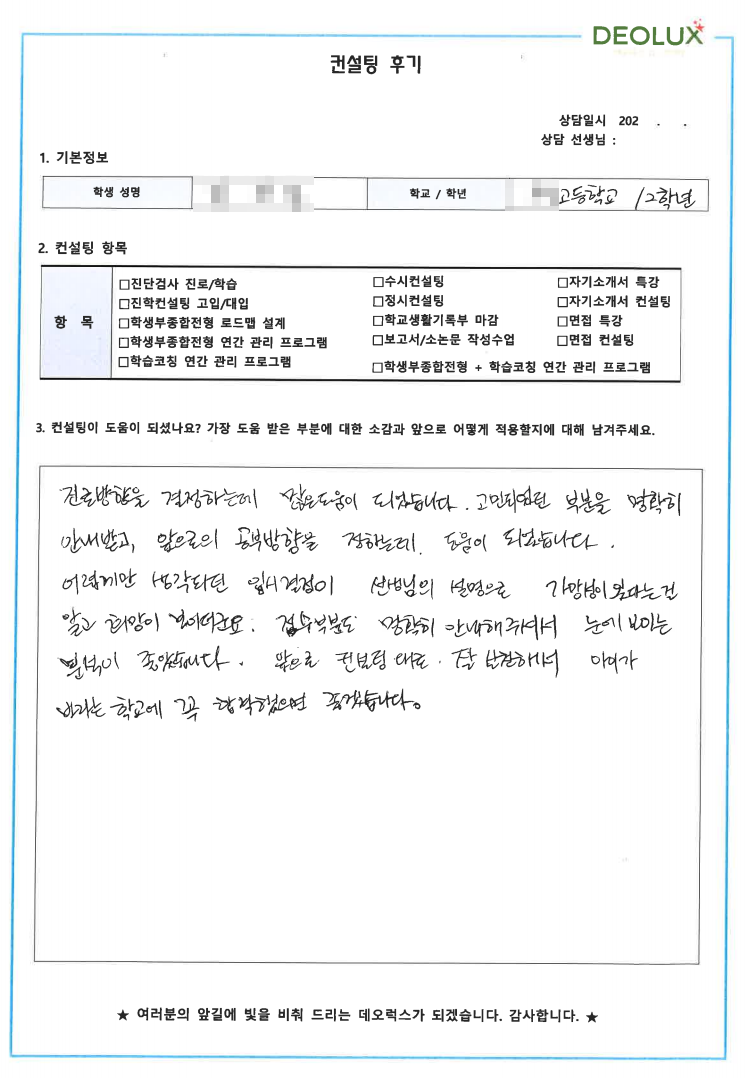 DEOLUX
컨설팅 후기
상담일시 202 . .
상담 선생님 :
1. 기본정보
학생 성명 학교 / 학년 고등학교 / 2학년
2. 컨설팅 항목
항 목
□진단검사 진로/학습 □수시컨설팅 □자기소개서 특강
□진학컨설팅 고입/대입 □정시컨설팅 □자기소개서 컨설팅
□학생부종합전형 로드맵 설계 □학교생활기록부 마감 □면접 특강
□학생부종합전형 연간 관리 프로그램 □보고서/소논문 작성수업 □면접 컨설팅
□학습코칭 연간 관리 프로그램 □학생부종합전형 + 학습코칭 연간 관리 프로그램
3. 컨설팅이 도움이 되셨나요? 가장 도움 받은 부분에 대한 소감과 앞으로 어떻게 적용할지에 대해 남겨주세요.
진로방향을 결정하는데 많은도움이 되었습니다. 부분을 명확히
안내받고, 앞으로의 공부방향을 정하는데 도움이 되었습니다.
어렵게만 생각되던 입시결정이 선생님의 설명으로 가망성이 있다는걸
알고 희망이 보이더군요. 접수부분도 명확히 안내해주셔서 눈에 보이는
분석이 좋았습니다. 앞으로 컨설팅 대로 잘 아이가
바라는 학교에 꼭 합격했으면 좋겠습니다.
★ 여러분의 앞길에 빛을 비춰 드리는 데오럭스가 되겠습니다. 감사합니다. ★